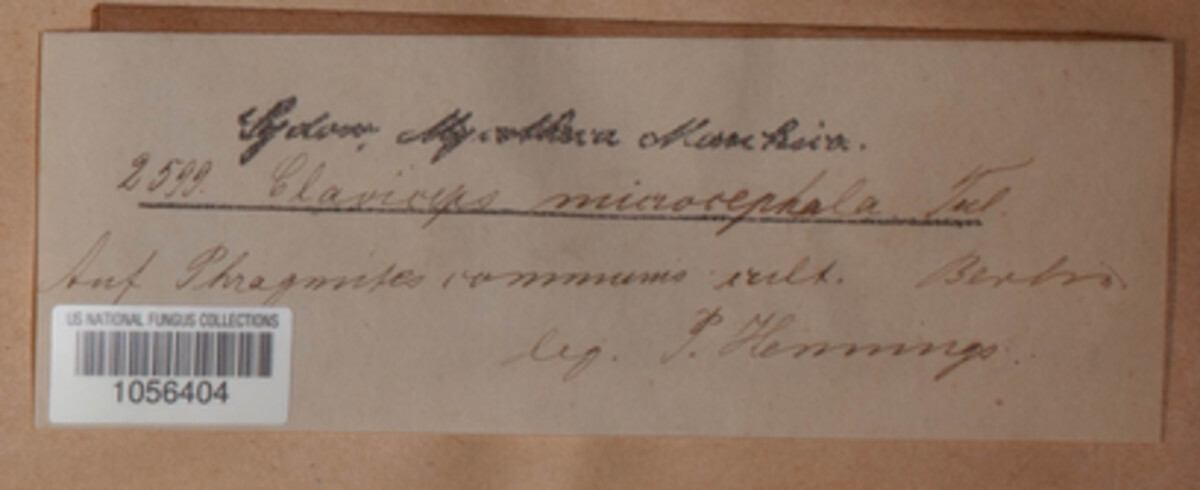 Sydow, Mycotheca Marchica.
2599. Claviceps microcephala Tul.
Auf Phragmites communis cult. Berlin
leg. P. Hennings.
US NATIONAL FUNGUS COLLECTIONS
1056404